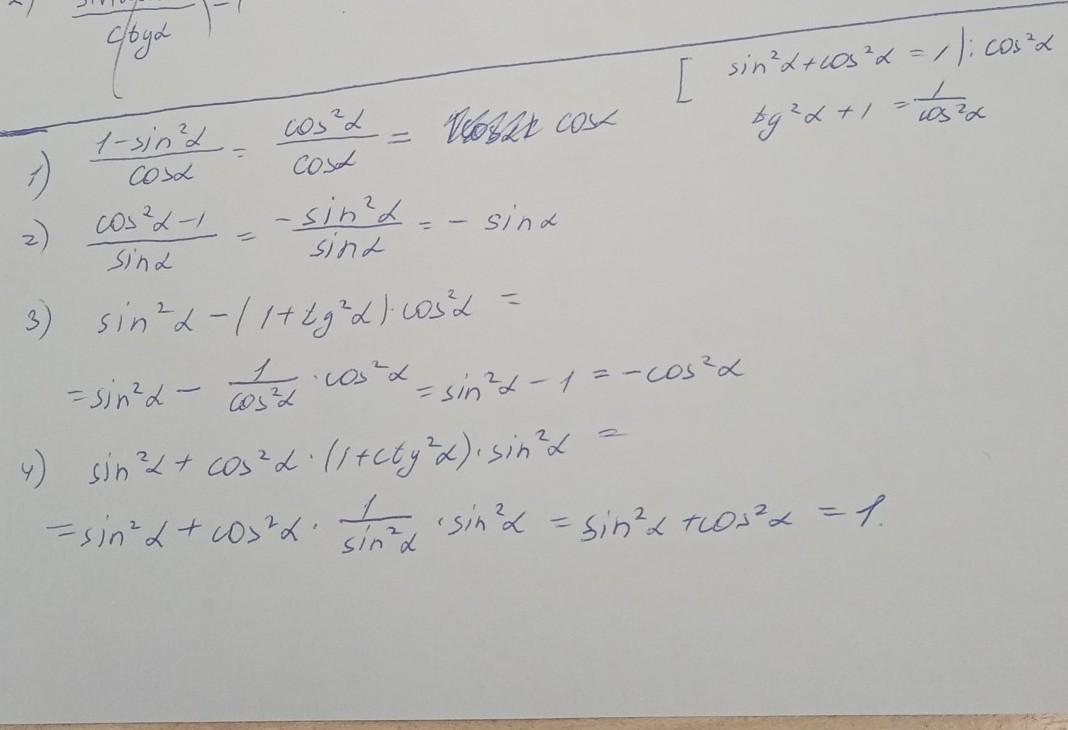 ctgα
[ sin²α + cos²α = 1 ) : cos²α
tg²α + 1 = 1/cos²α
1) (1 - sin²α)/cosα = cos²α/cosα = cosα
2) (cos²α - 1)/sinα = -sin²α/sinα = - sinα
3) sin²α - (1 + tg²α) · cos²α =
= sin²α - 1/cos²α · cos²α = sin²α - 1 = -cos²α
4) sin²α + cos²α · (1 + ctg²α) · sin²α =
= sin²α + cos²α · 1/sin²α · sin²α = sin²α + cos²α = 1.